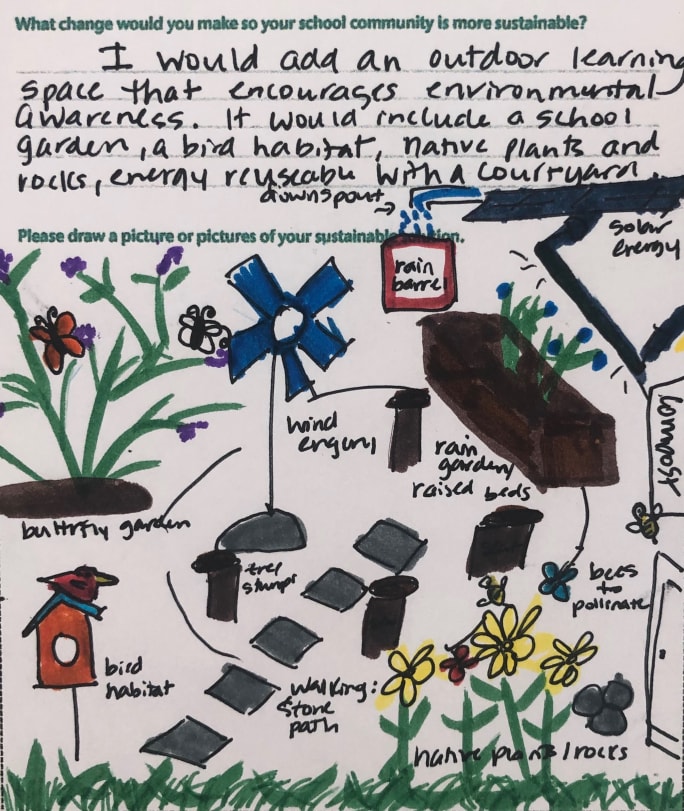 What change would you make so your school community is more sustainable?
I would add an outdoor learning
space that encourages environmental
awareness. It would include a school
garden, a bird habitat, native plants and
rocks, energy reuseable with a courtyard.
downspout
Please draw a picture or pictures of your sustainable
rain
barrel
solar
energy
wind
rain
garden/
raised beds
compost
buttrfly garden
tree
stumps
bees
to
pollinate
bird
habitat
walking:
stone
path
native plants/rocks